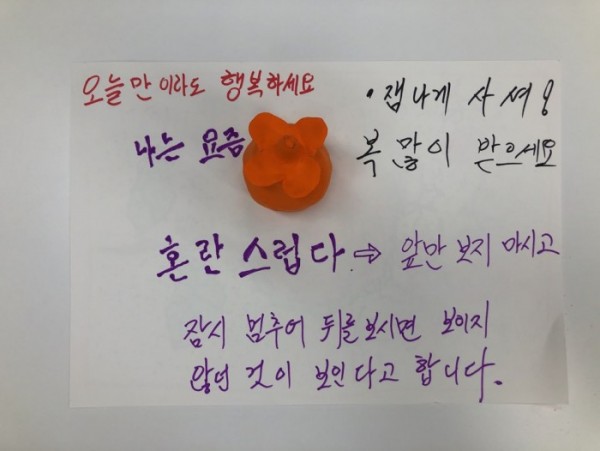 오늘만이라도 행복하세요
· 잼나게 사셔!
나는 요즘
복 많이 받으세요
혼란스럽다. ⇨ 앞만 보지 마시고
잠시 멈추어 뒤를 보시면 보이지
않던 것이 보인다고 합니다.